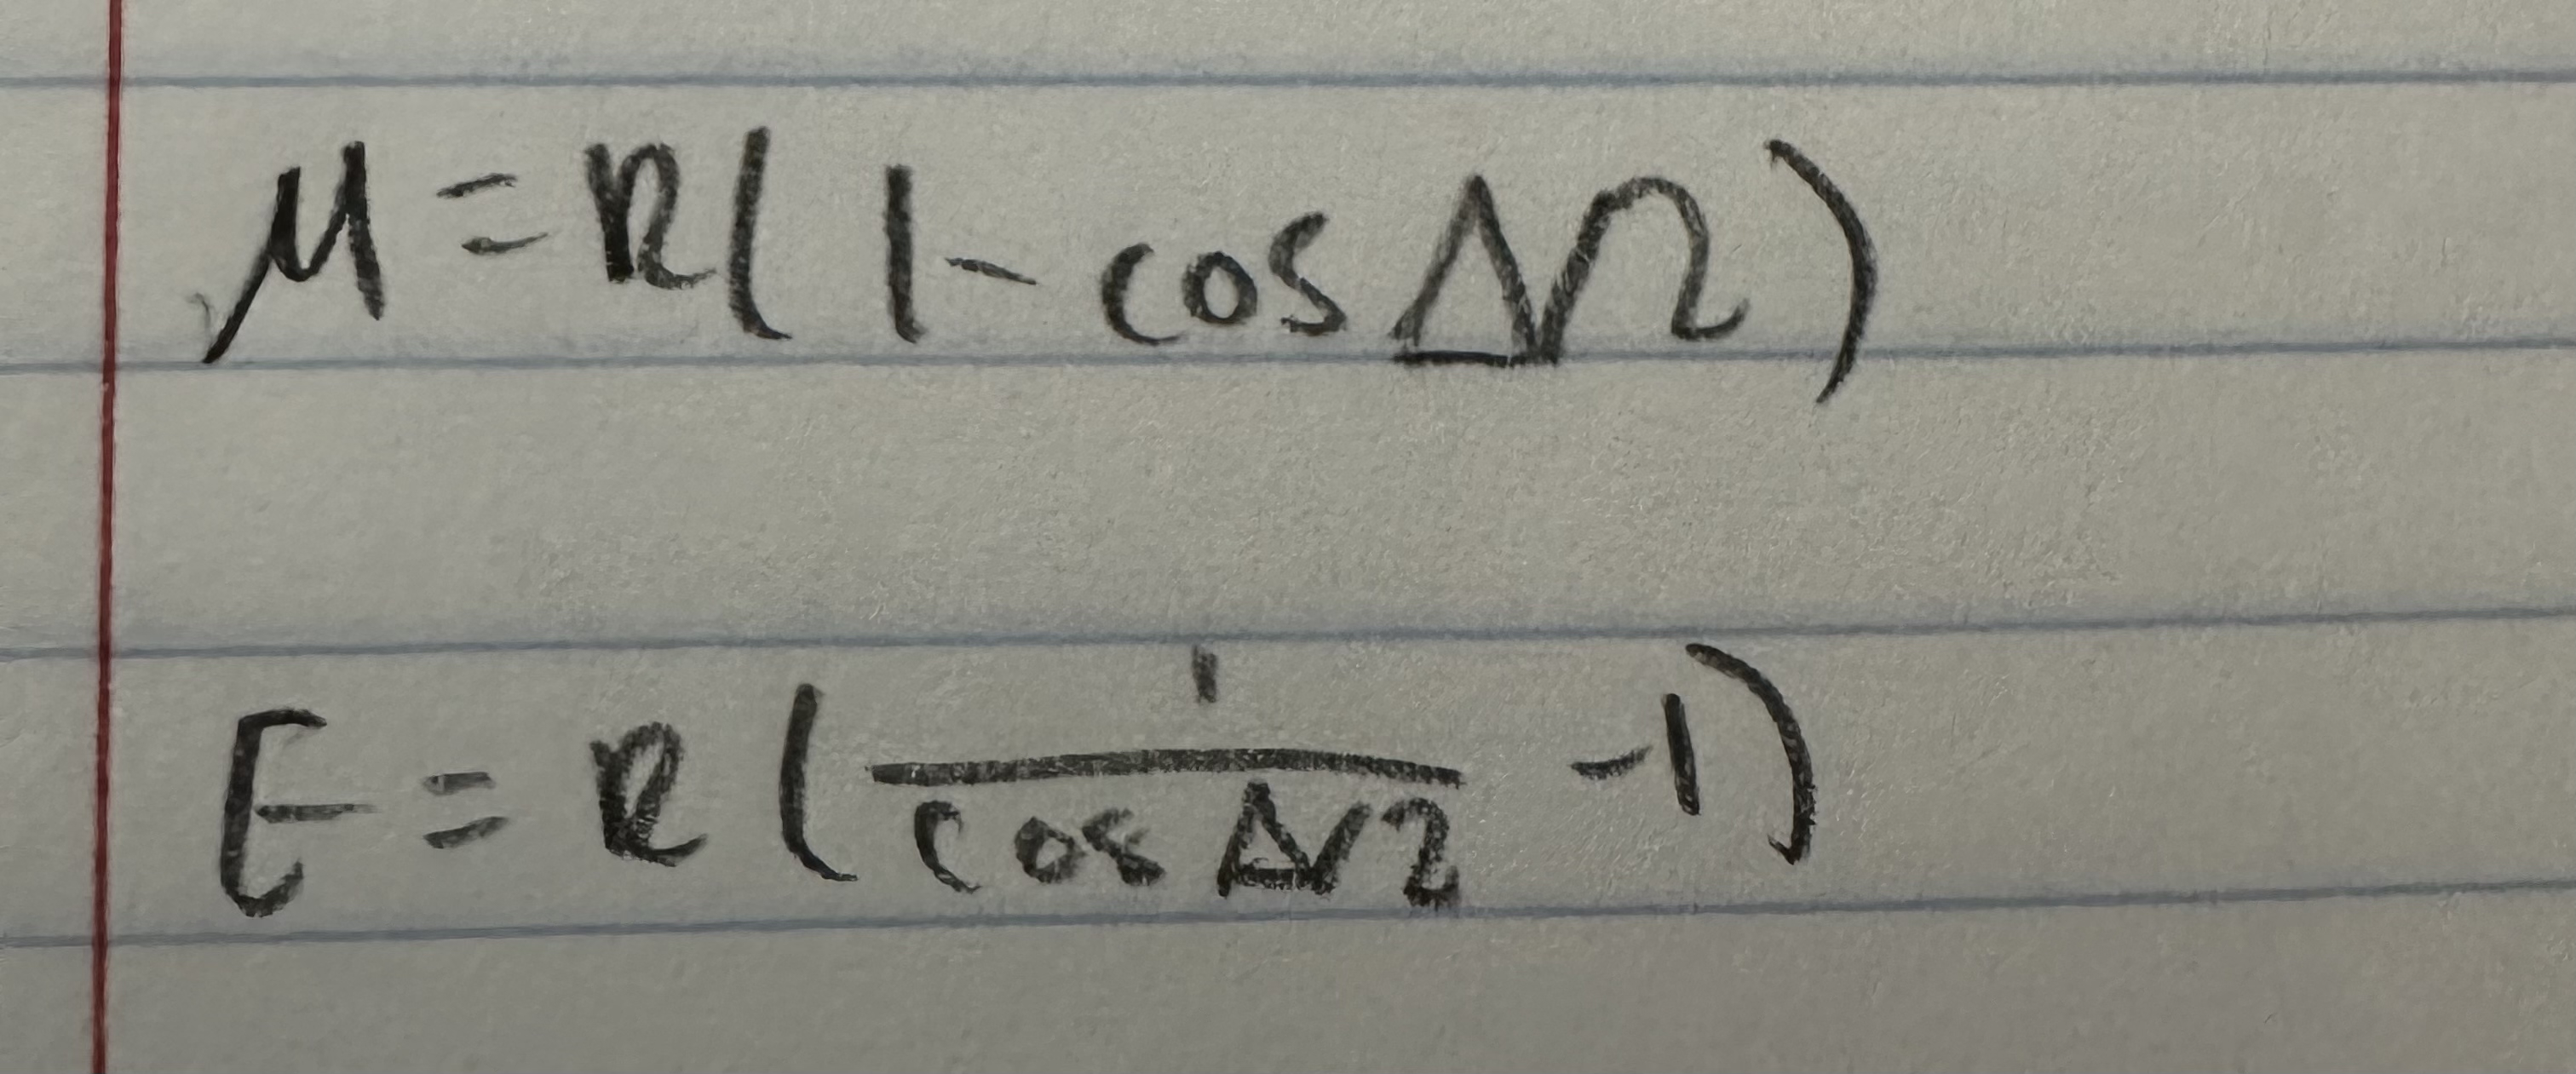 M = R(1 - cos Δ/2)
E = R(1/(cos Δ/2) - 1)